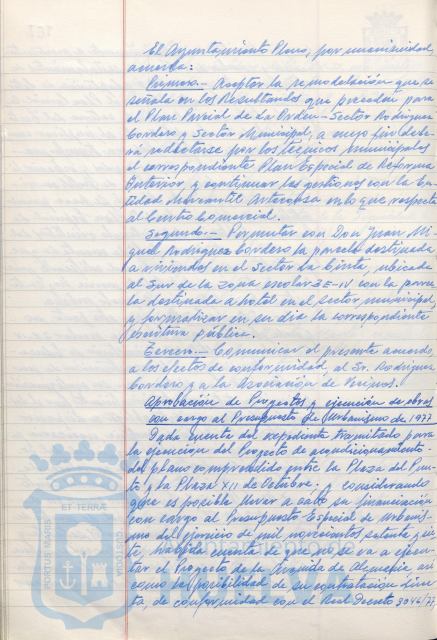 El Ayuntamiento Pleno, por unanimidad,
acuerda:
Primero.- Aceptar la remodelación que se
señala en los Resultandos que preceden para
el Plan Parcial de La Orden-Sector Rodríguez
Cordero y Sector Municipal, a cuyo fin debe-
rá redactarse por los técnicos municipales
el correspondiente Plan Especial de Reforma
Interior, y continuar las gestiones con la En-
tidad Mercantil en lo que respecta
al Centro Comercial.
Segundo.- Permutar con Don Juan Mi-
guel Rodríguez Cordero la parcela destinada
a viviendas en el Sector La Cinta, ubicada
al Sur de la zona escolar IV con la parce-
la destinada a hotel en el sector municipal,
y formalizar en su día la correspondiente
escritura pública.
Tercero.- Comunicar el presente acuerdo,
a los efectos de conformidad, al Sr. Rodríguez
Cordero y a la Asociación de Vecinos.
Aprobación de Proyectos y ejecución de obras
con cargo al Presupuesto de Urbanismo de 1977
Dada cuenta del expediente tramitado para
la ejecución del Proyecto de acondicionamiento
del plano comprendido entre la Plaza del Pun-
to y la Plaza XII de Octubre, y considerando
que es posible llevar a cabo su financiación
con cargo al Presupuesto Especial de Urbanis-
mo del ejercicio de mil novecientos setenta y sie-
te, habida cuenta de que no se va a ejecu-
tar el Proyecto de la Avenida de así
como la posibilidad de su contratación direc-
ta, de conformidad con el Real Decreto 3046/77,
PORTUS MARIS ET TERRAE CUSTODIA